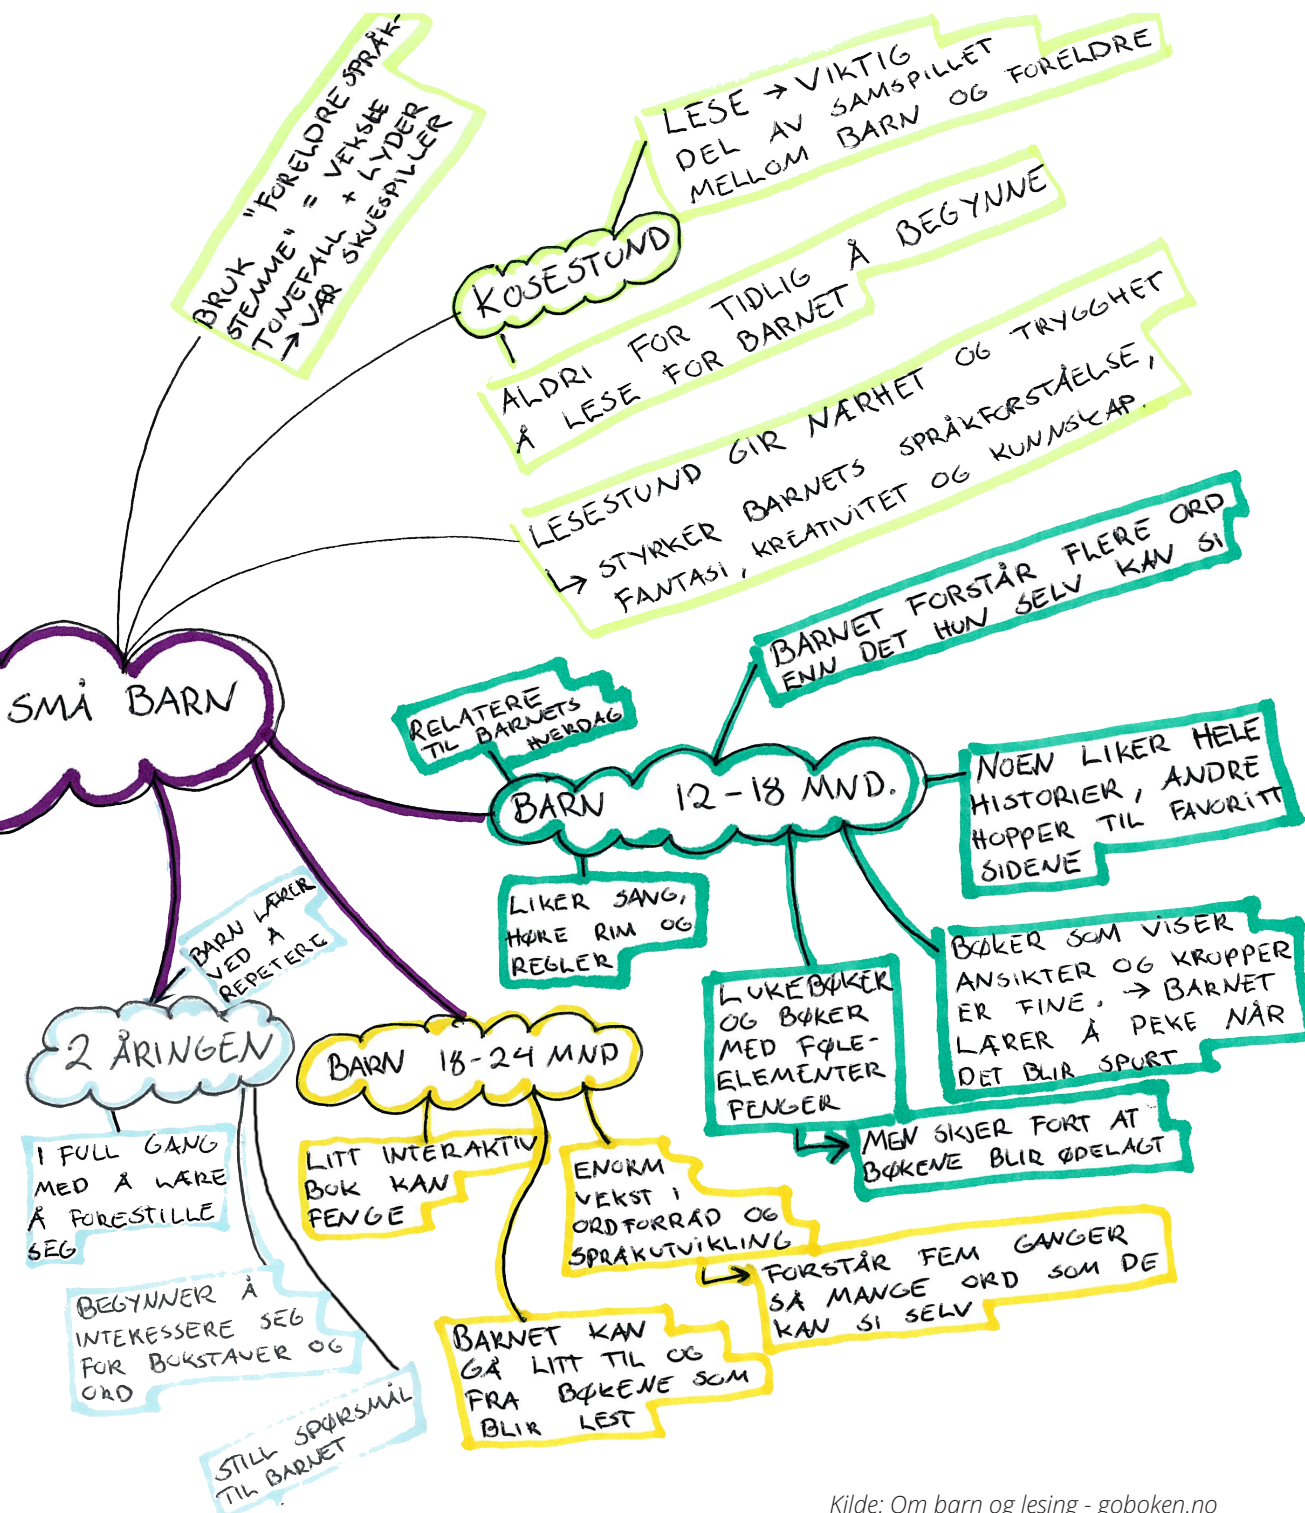 BRUK "FORELDRE SPRÅK-
STEMME" = VEKSLE
TONEFALL + LYDER
→ VÆR SKUESPILLER
LESE → VIKTIG
DEL AV SAMSPILLET
MELLOM BARN OG FORELDRE
KOSESTUND
ALDRI FOR TIDLIG Å BEGYNNE
Å LESE FOR BARNET
LESESTUND GIR NÆRHET OG TRYGGHET
↳ STYRKER BARNETS SPRÅKFORSTÅELSE,
FANTASI, KREATIVITET OG KUNNSKAP.
SMÅ BARN
BARNET FORSTÅR FLERE ORD
ENN DET HUN SELV KAN SI
RELATERE
TIL BARNETS
HVERDAG
BARN 12-18 MND.
NOEN LIKER HELE
HISTORIER, ANDRE
HOPPER TIL FAVORITT
SIDENE
LIKER SANG,
HØRE RIM OG
REGLER
LUKEBØKER
OG BØKER
MED FØLE-
ELEMENTER
FENGER
→ MEN SKJER FORT AT
BØKENE BLIR ØDELAGT
BØKER SOM VISER
ANSIKTER OG KROPPER
ER FINE. → BARNET
LÆRER Å PEKE NÅR
DET BLIR SPURT
BARN LÆRER
VED Å
REPETERE
2 ÅRINGEN
I FULL GANG
MED Å LÆRE
Å FORESTILLE
SEG
BEGYNNER Å
INTERESSERE SEG
FOR BOKSTAVER OG
ORD
STILL SPØRSMÅL
TIL BARNET
BARN 18-24 MND
LITT INTERAKTIV
BOK KAN
FENGE
ENORM
VEKST I
ORDFORRÅD OG
SPRÅKUTVIKLING
↳ FORSTÅR FEM GANGER
SÅ MANGE ORD SOM DE
KAN SI SELV
BARNET KAN
GÅ LITT TIL OG
FRA BØKENE SOM
BLIR LEST
Kilde: Om barn og lesing - goboken.no